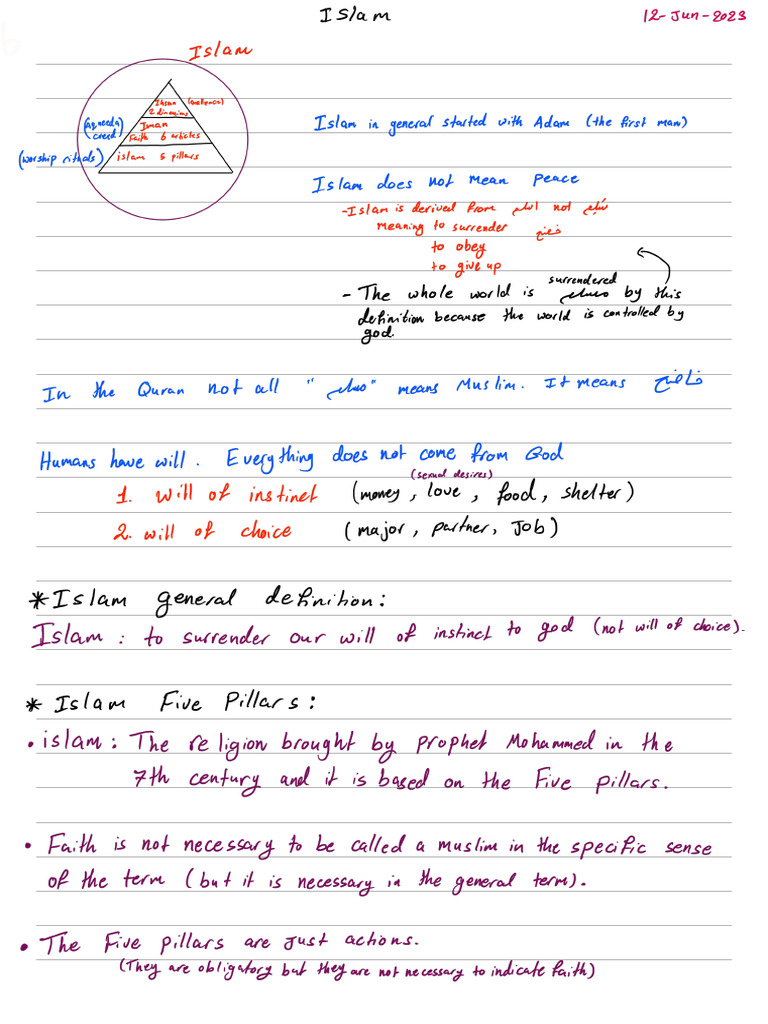 Islam
12-Jun-2023
Islam
Ihsan (exellence)
2 dimensions
(Aqeeda creed)
Iman
Faith 6 articles
(worship rituals)
islam 5 pillars
Islam in general started with Adam (the first man)
Islam does not mean peace
- Islam is derived from اسلم not
meaning to surrender
to obey
to give up
surrendered
- The whole world is by this
definition because the world is controlled by
god.
In the Quran not all " " means Muslim. It means خاضع
Humans have will. Everything does not come from God
(sexual desires)
1. will of instinct (money, love, food, shelter)
2. will of choice (major, partner, Job)
*Islam general definition:
Islam: to surrender our will of instinct to god (not will of choice).
* Islam Five Pillars:
• islam: The religion brought by prophet Mohammed in the
7th century and it is based on the Five pillars.
• Faith is not necessary to be called a muslim in the specific sense
of the term (but it is necessary in the general term).
• The Five pillars are just actions.
(They are obligatory but they are not necessary to indicate faith)